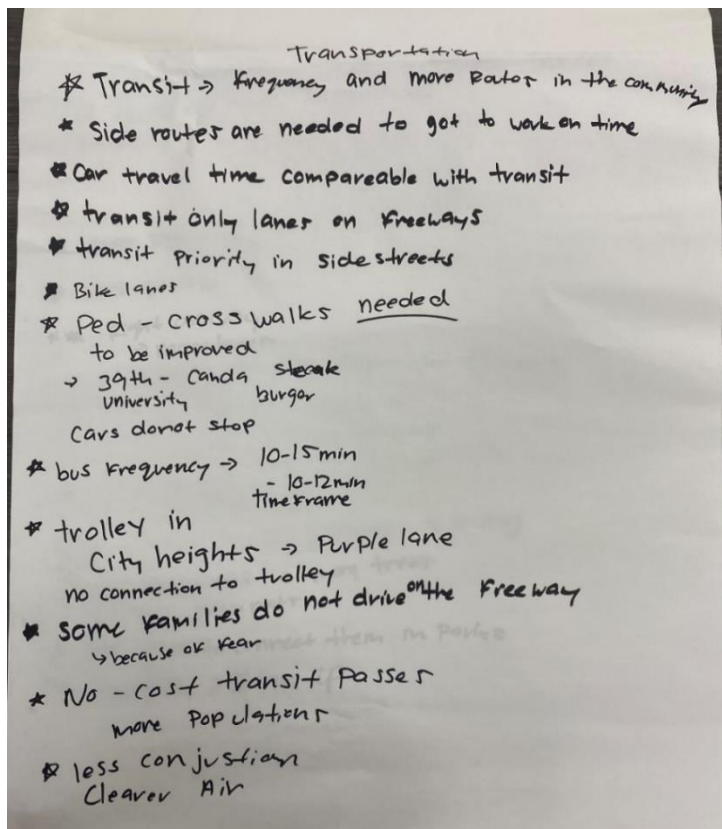 Transportation
* Transit → Frequency and more Rates in the community
* Side routes are needed to got to work on time
* Car travel time compareable with transit
* transit only lanes on Freeways
* transit Priority in side streets
* Bike lanes
* Ped - cross walks needed
to be improved
→ 39th - Canda steak
university burger
Cars donot stop
* bus Frequency → 10-15min
- 10-12min
timeframe
* trolley in
City heights → Purple lane
no connection to trolley
* some families do not drive on the Freeway
↳ because of fear
* No - cost transit Passes
more Populations
* less conjustion
Clearer Air